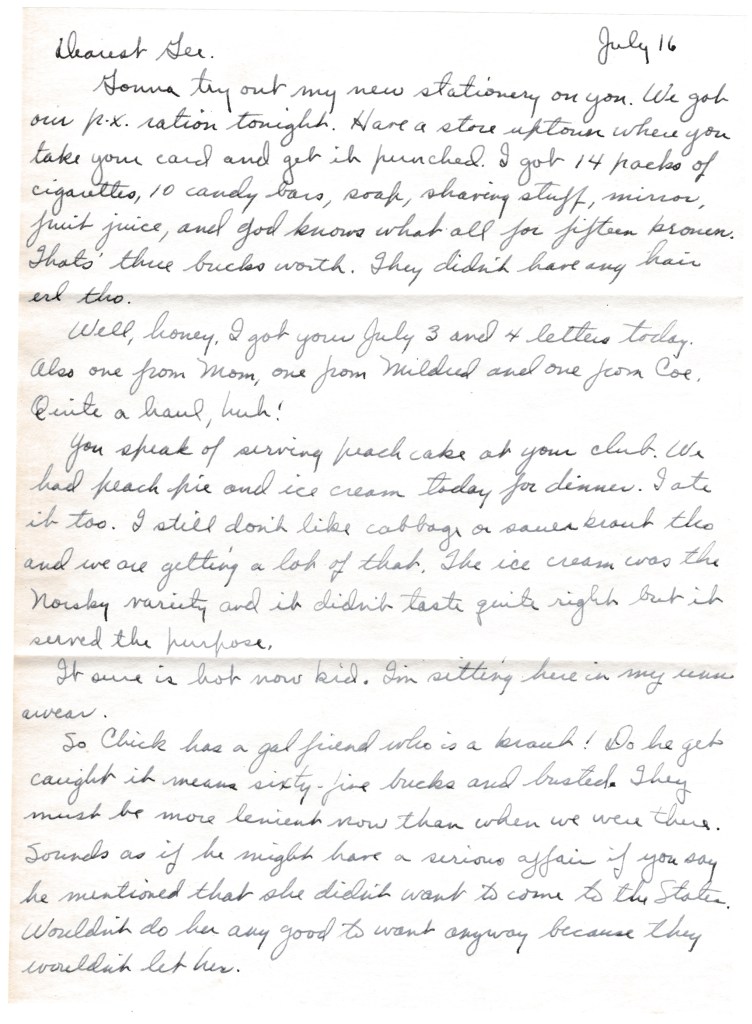 Dearest Gee. July 16
Gonna try out my new stationery on you. We got
our p.x. ration tonight. Have a store uptown where you
take your card and get it punched. I got 14 packs of
cigarettes, 10 candy bars, soap, shaving stuff, mirror,
fruit juice, and god knows what all for fifteen kronen.
Thats' three bucks worth. They didn't have any hair
erl tho.
Well, honey, I got your July 3 and 4 letters today.
Also one from Mom, one from Mildred and one from Coe.
Quite a haul, huh!
You speak of serving peach cake at your club. We
had peach pie and ice cream today for dinner. I ate
it too. I still don't like cabbage or sauerkraut tho
and we are getting a lot of that. The ice cream was the
Norsky variety and it didn't taste quite right but it
served the purpose.
It sure is hot now kid. I'm sitting here in my unn
awear.
So Chick has a gal friend who is a kraut! Do he get
caught it means sixty-five bucks and busted. They
must be more lenient now than when we were there.
Sounds as if he might have a serious affair if you say
he mentioned that she didn't want to come to the States.
Wouldn't do her any good to want anyway because they
wouldn't let her.